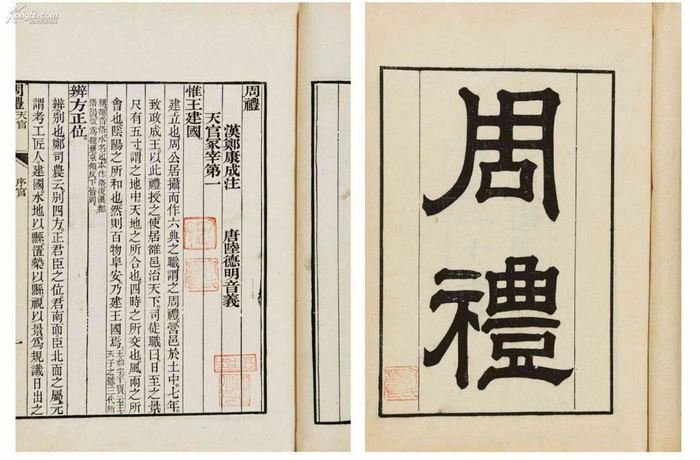 kongfz.com
周禮
漢鄭康成注 唐陸德明音義
天官冢宰第一
惟王建國。
建立也周公居攝而作六典之職謂之周禮營邑於土中七年
致政成王以此禮授之使居雒邑治天下司徒職曰日至之景
尺有五寸謂之地中天地之所合也四時之所交也風雨之所
會也陰陽之所和也然則百物阜安乃建王國焉
天子之號三代所
辨方正位。
辨別也鄭司農云別四方正君臣之位君南面臣北面之屬元
謂考工匠人建國水地以縣置槷以縣視以景為規識日出之
周禮 天官 序官 一
周禮